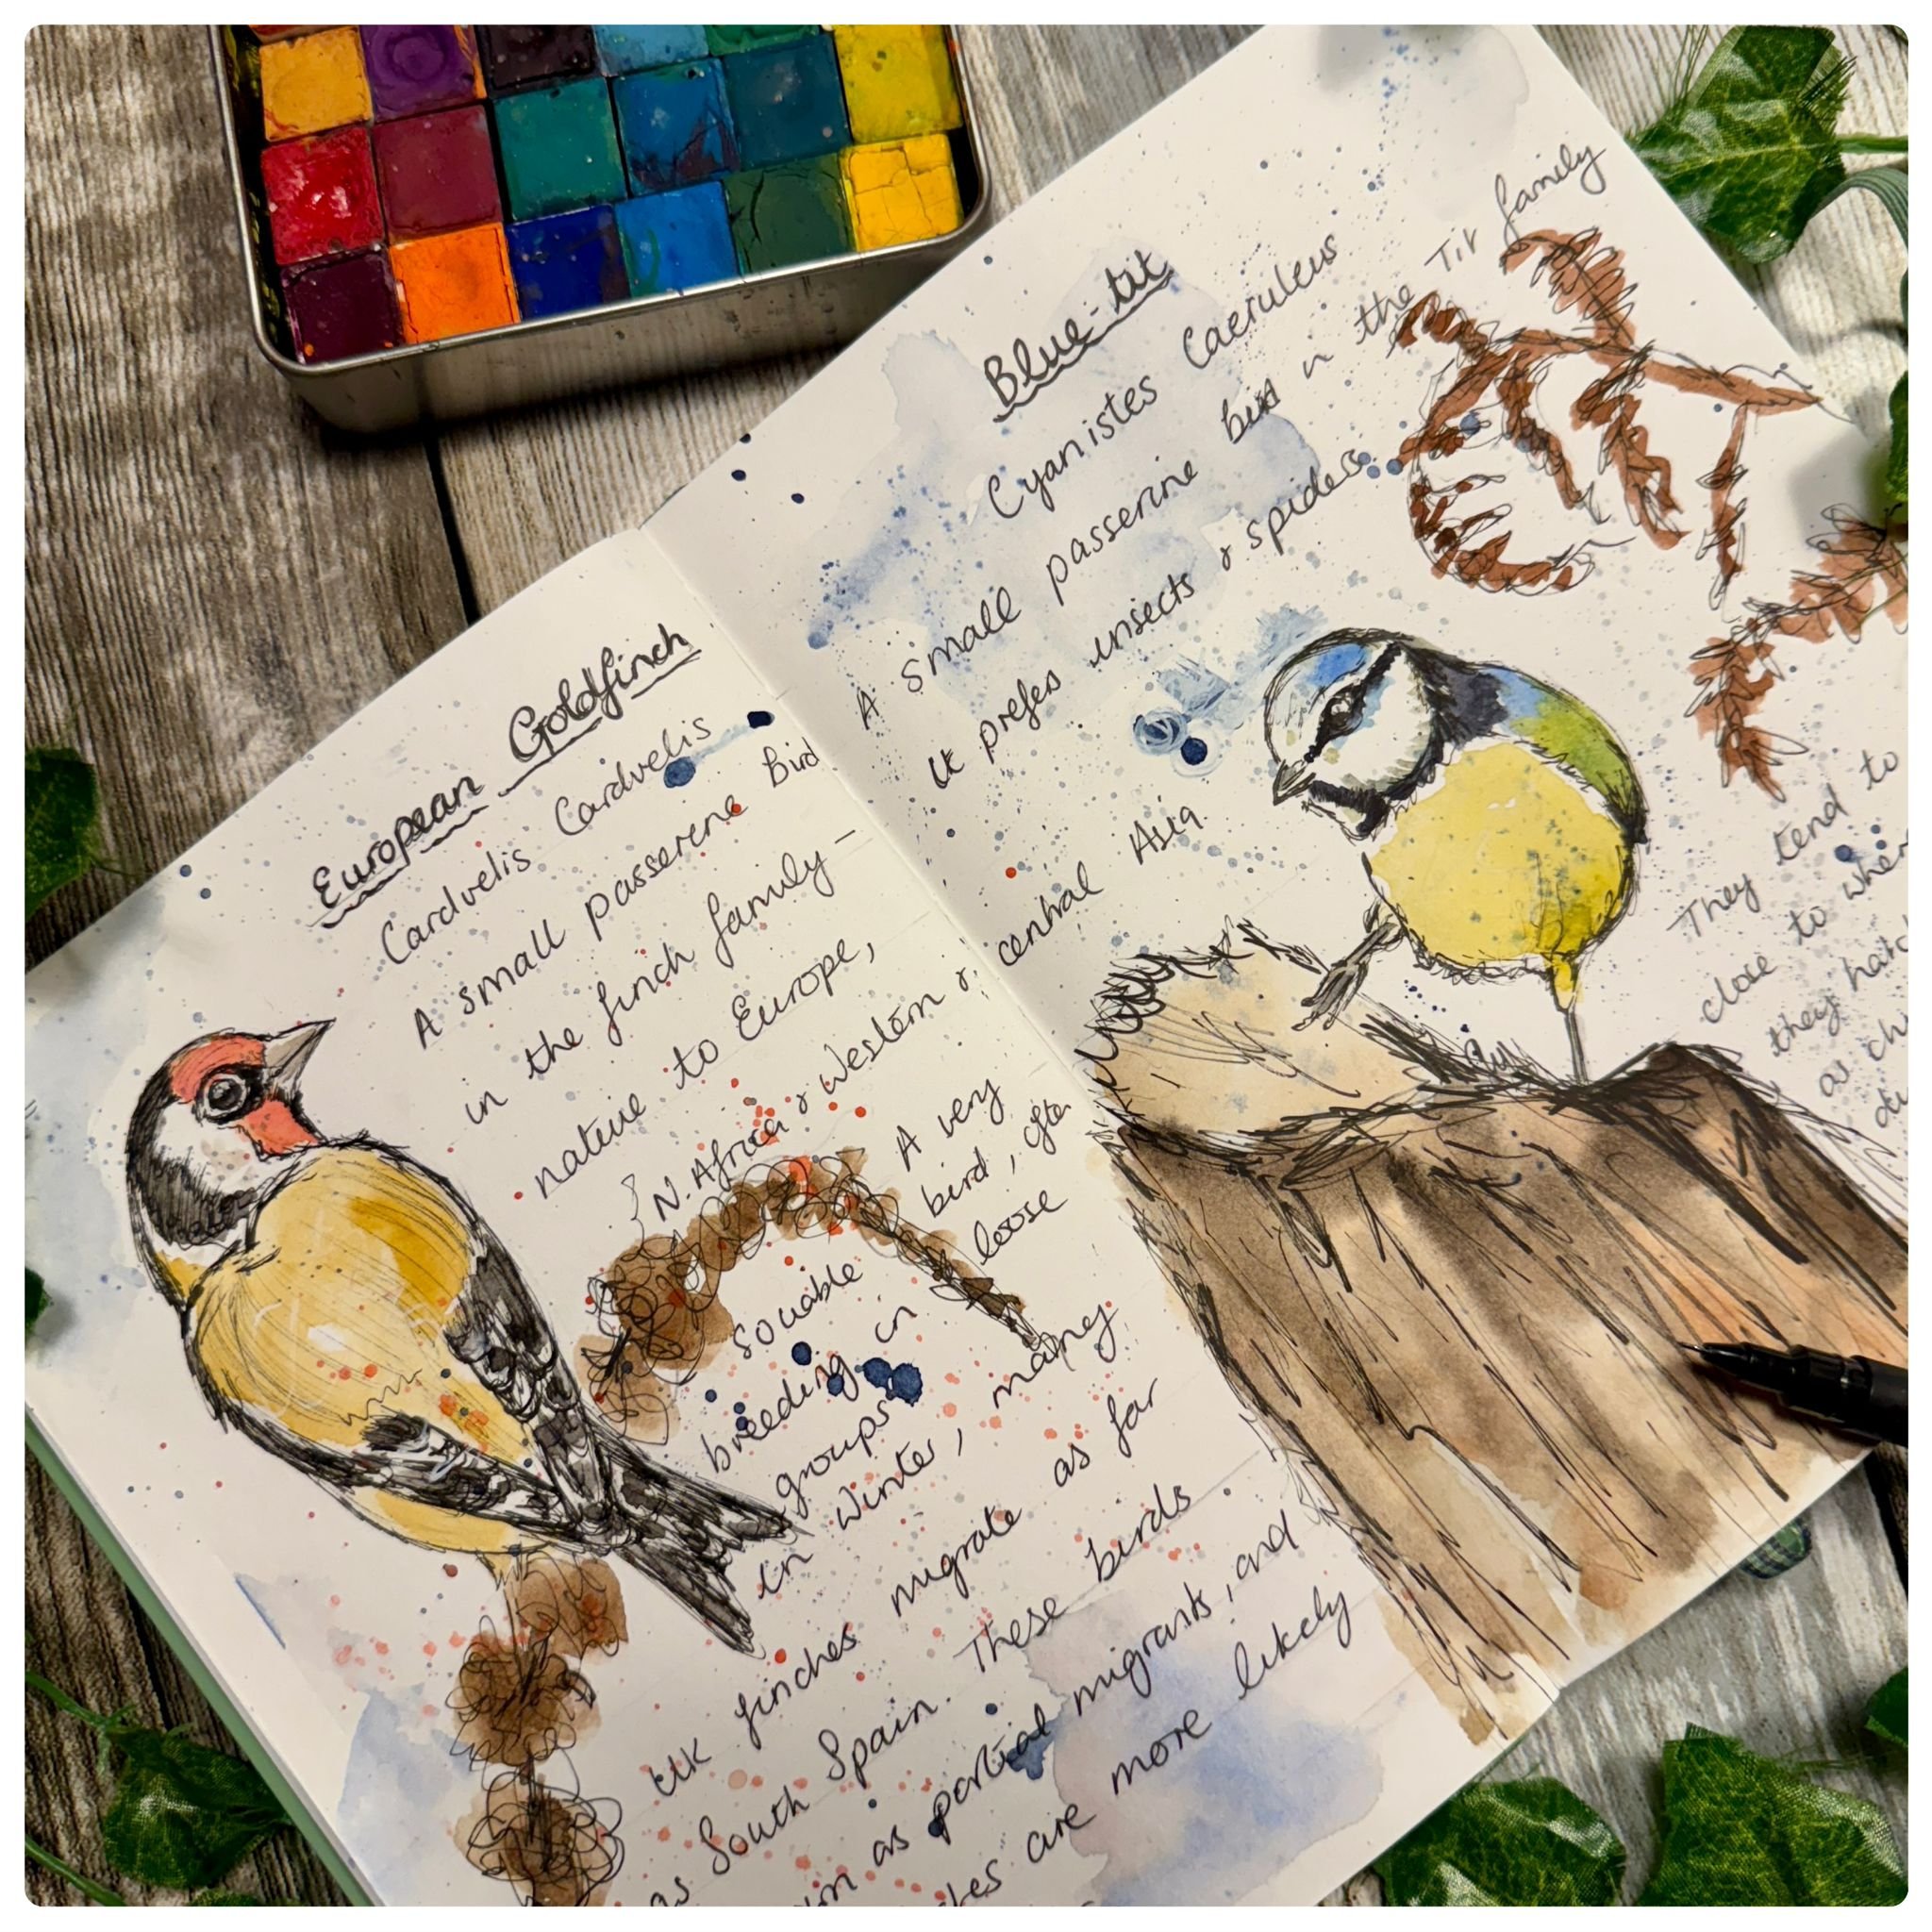 European Goldfinch
Cardvelis Cardvelis
A small passerene Bird
in the finch family -
native to Europe,
N. Africa & Western &
central Asia
A very
souable bird, often
breeding in loose
groups
in winter, many
UK finches migrate as far
as South Spain. These birds
as partial migrants, and
are more likely
Blue-tit
Cyanistes Caeruleus
A small passerine bird in the Tit family
It prefers insects & spiders
They tend to
close to where
they hatch